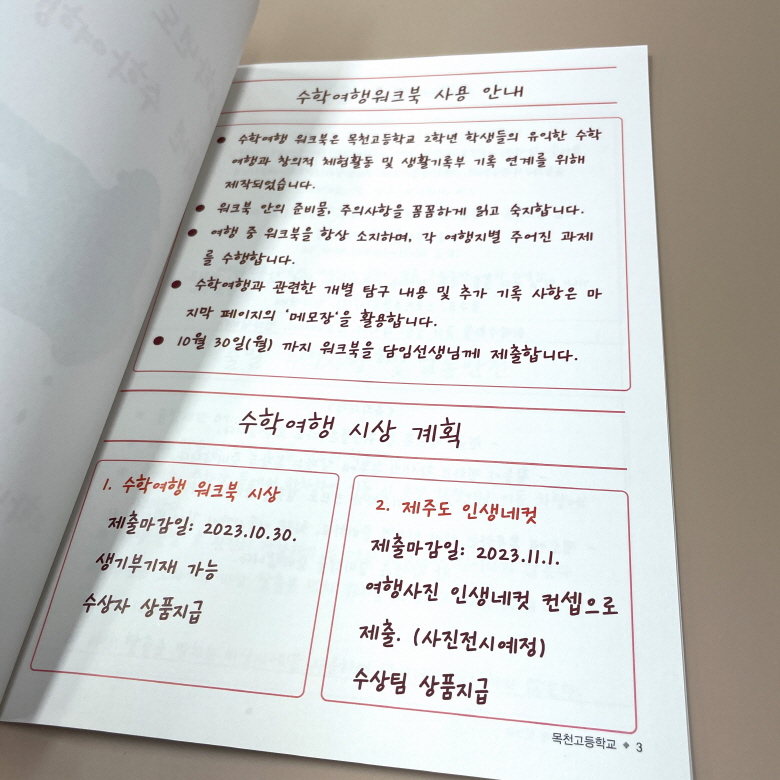 수학여행워크북 사용 안내
● 수학여행 워크북은 목천고등학교 2학년 학생들의 유익한 수학
여행과 창의적 체험활동 및 생활기록부 기록 연계를 위해
제작되었습니다.
● 워크북 안의 준비물, 주의사항을 꼼꼼하게 읽고 숙지합니다.
● 여행 중 워크북을 항상 소지하며, 각 여행지별 주어진 과제
를 수행합니다.
● 수학여행과 관련한 개별 탐구 내용 및 추가 기록 사항은 마
지막 페이지의 '메모장'을 활용합니다.
● 10월 30일(월) 까지 워크북을 담임선생님께 제출합니다.
수학여행 시상 계획
1. 수학여행 워크북 시상
제출마감일: 2023.10.30.
생기부기재 가능
수상자 상품지급
2. 제주도 인생네컷
제출마감일: 2023.11.1.
여행사진 인생네컷 컨셉으로
제출. (사진전시예정)
수상팀 상품지급
목천고등학교 ◆ 3